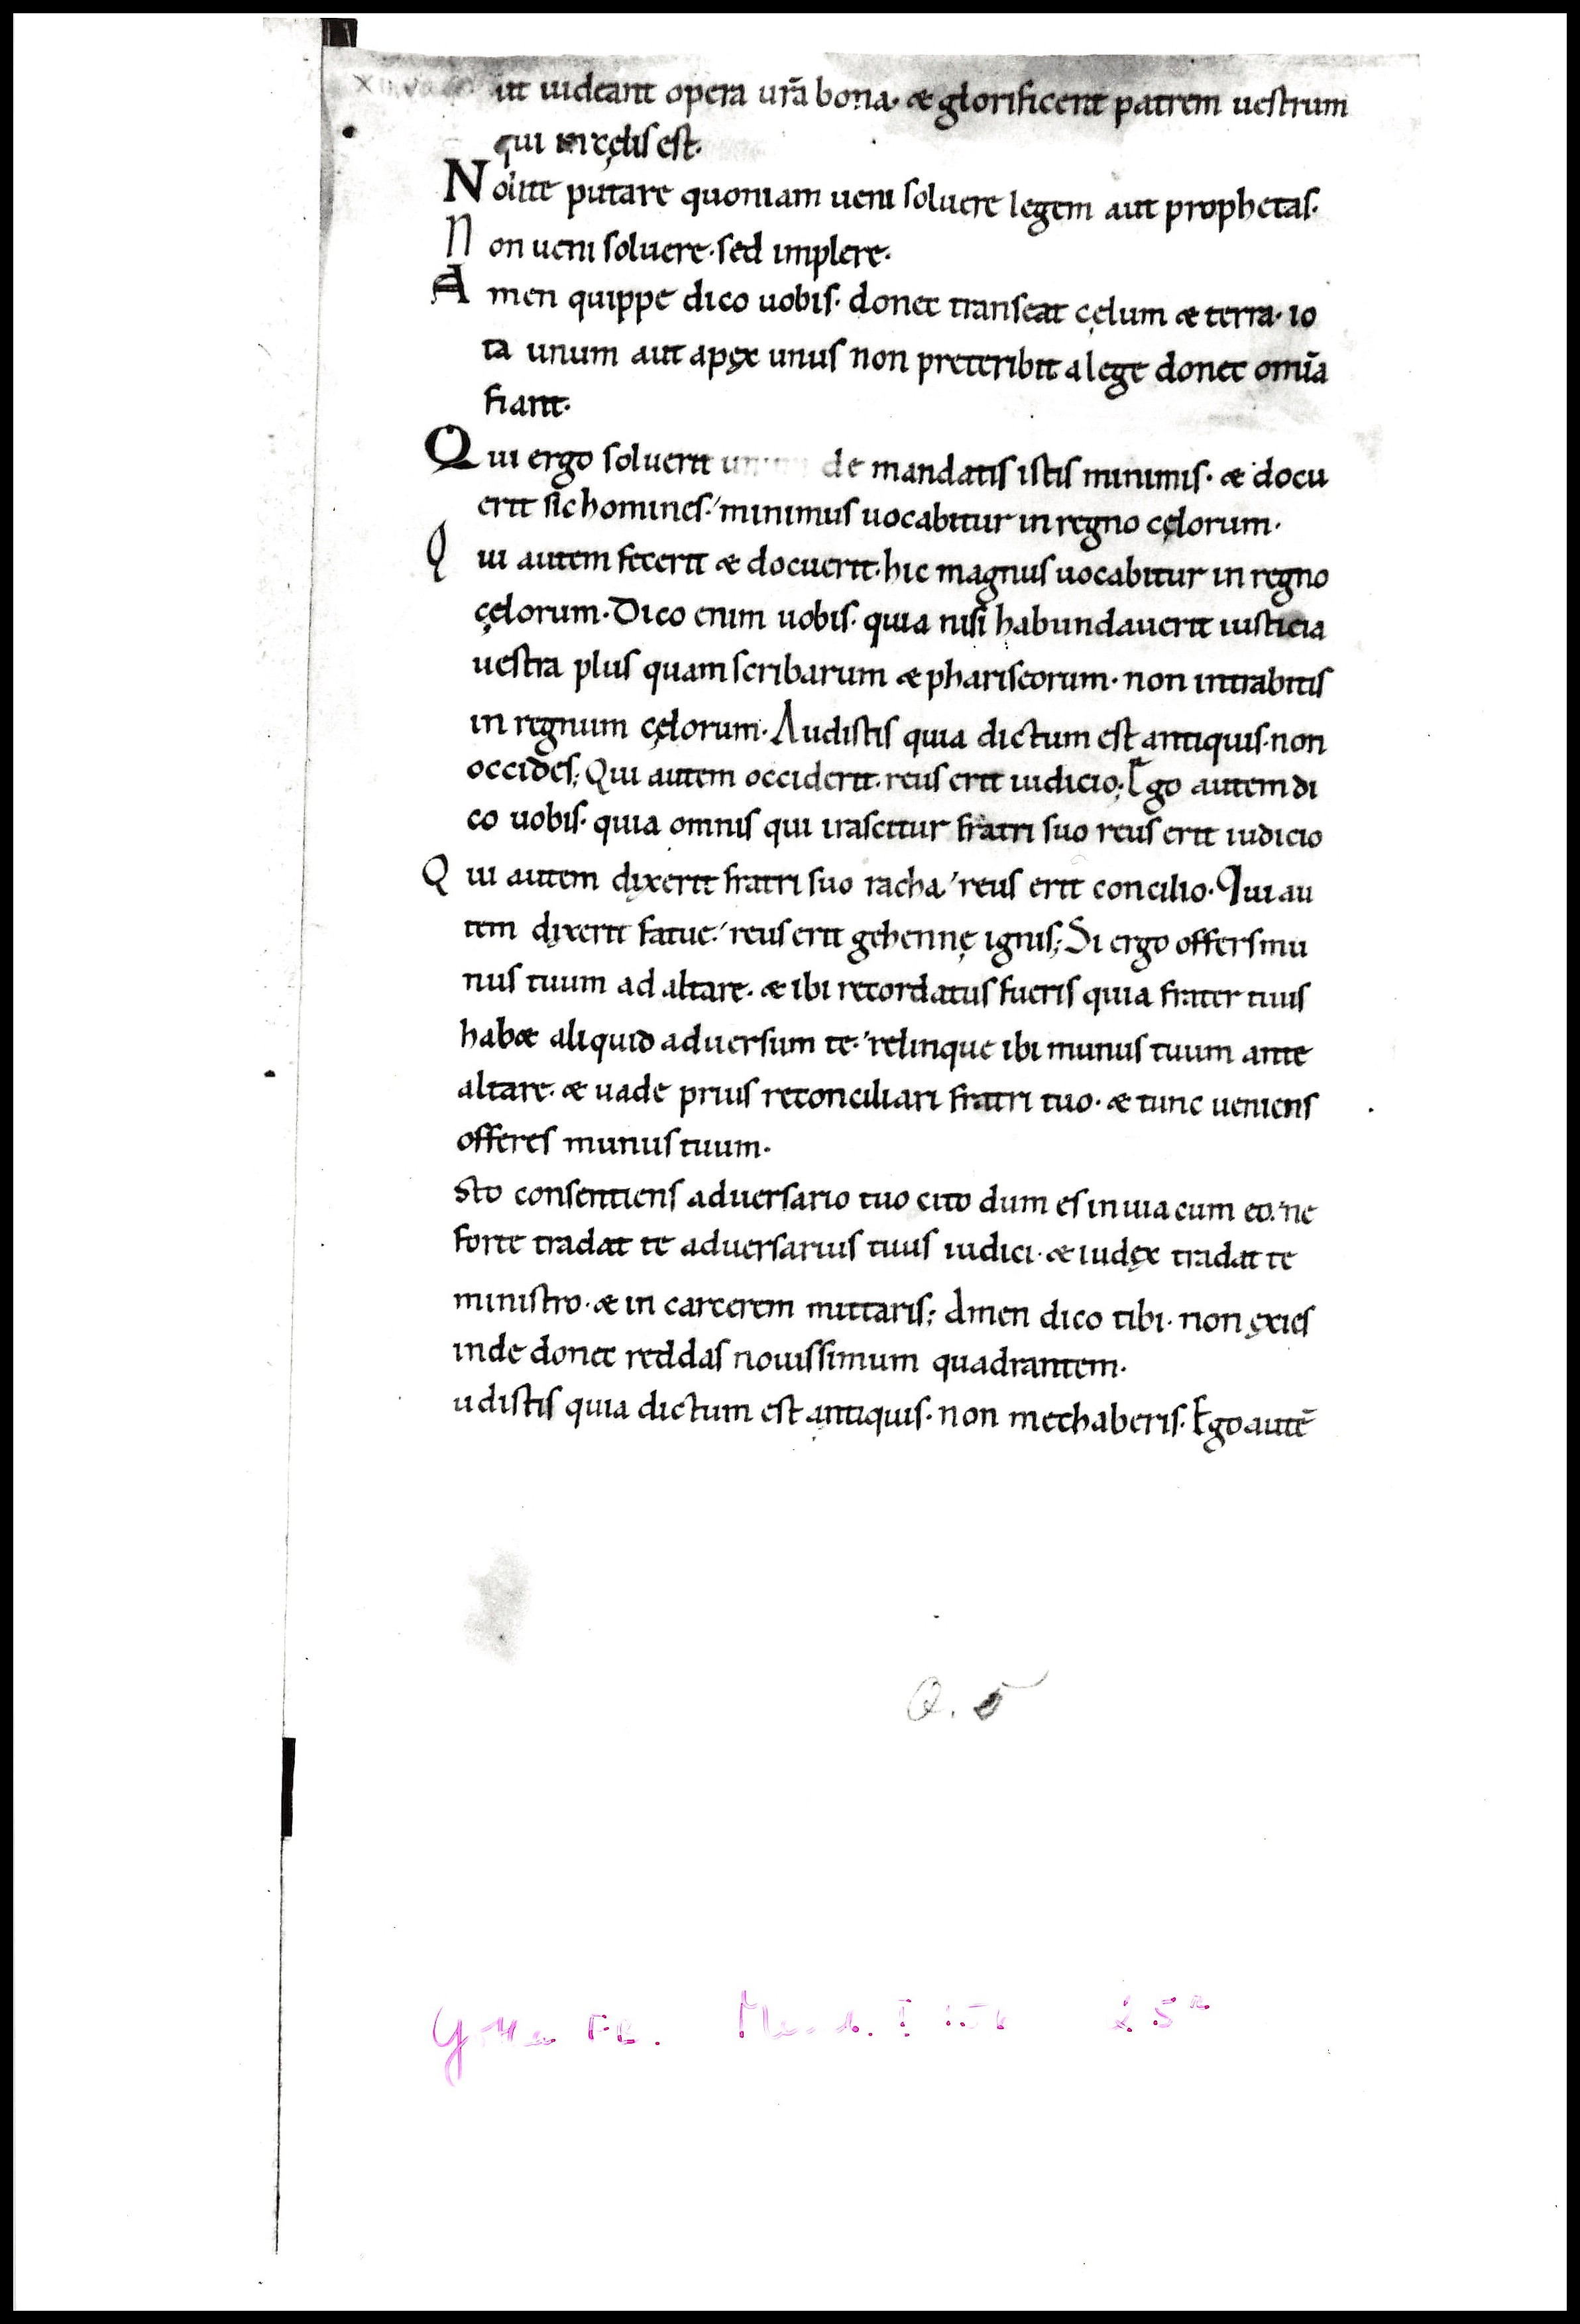 ut uideant opera ur̄a bona· & glorificent patrem uestrum
qui in cęlis est·
Nolite putare quoniam ueni soluere legem aut prophetas·
Non ueni soluere· sed implere·
Amen quippe dico uobis· donec transeat cęlum & terra· io
ta unum aut apęx unus non preteribit a lege donec omīa
fiant·
Qui ergo soluerit de mandatis istis minimis· & docu
erit sic homines·' minimus uocabitur in regno cęlorum·
Qui autem fecerit & docuerit· hic magnus uocabitur in regno
cęlorum· Dico enim uobis· quia nisi habundauerit iusticia
uestra plus quam scribarum & phariseorum· non intrabitis
in regnum cęlorum· Audistis quia dictum est antiquis· non
occides; Qui autem occiderit· reus erit iudicio; Ego autem di
co uobis· quia omnis qui irascitur fratri suo reus erit iudicio
Qui autem dixerit fratri suo racha·' reus erit concilio· Qui au
tem dixerit fatue·' reus erit gehennę ignis; Si ergo offers mu
nus tuum ad altare· & ibi recordatus fueris quia frater tuus
hab& aliquid aduersum te·' relinque ibi munus tuum ante
altare· & uade prius reconciliari fratri tuo· & tunc ueniens
offeres munus tuum·
sto consentiens aduersario tuo cito dum es in uia cum eo·' ne
forte tradat te aduersarius tuus iudici· & iudęx tradat te
ministro· & in carcerem mittaris; Amen dico tibi· non ęxies
inde donec reddas nouissimum quadrantem·
udistis quia dictum est antiquis· non mechaberis· Ego autē